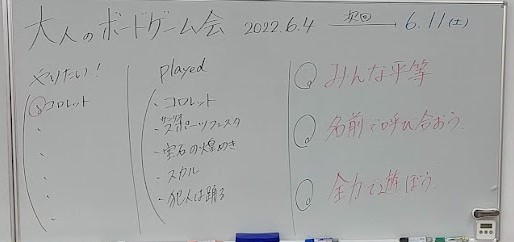 大人のボードゲーム会 2022.6.4 次回 → 6.11(土)
やりたい!
コロレット
played
・コロレット
・サンクスポーツフェスタ
・宝石の煌めき
・スカル
・犯人は踊る
みんな平等
名前で呼び合おう。
全力で遊ぼう。